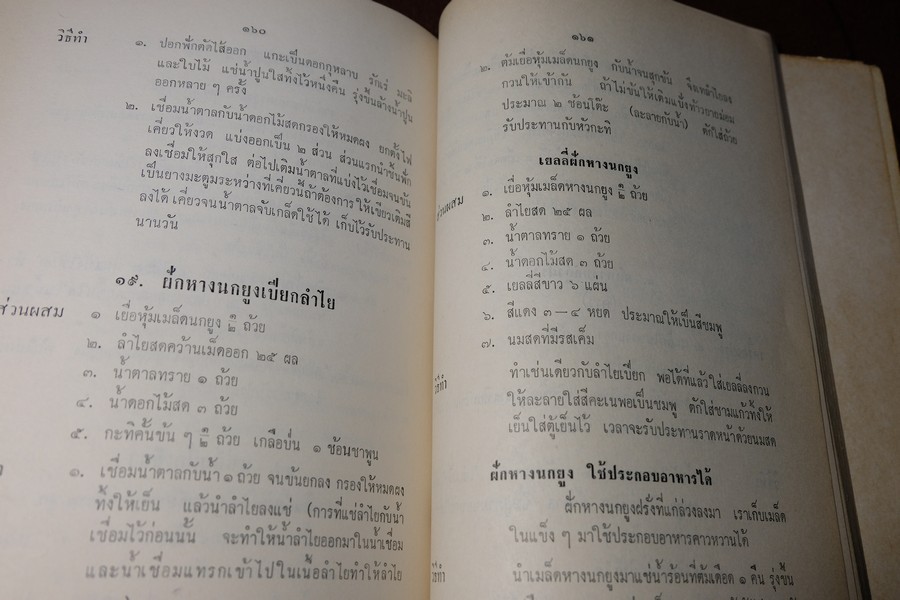 ๑๖๐
วิธีทำ
๑. ปอกฟักตัดไส้ออก แกะเป็นดอกกุหลาบ รักเร่ มะลิ
และใบไม้ แช่น้ำปูนใสทิ้งไว้หนึ่งคืน รุ่งขึ้นล้างน้ำปูน
ออกหลาย ๆ ครั้ง
๒. เชื่อมน้ำตาลกับน้ำดอกไม้สดกรองให้หมดผง ยกตั้งไฟ
เคี่ยวให้งวด แบ่งออกเป็น ๒ ส่วน ส่วนแรกนำชิ้นฟัก
ลงเชื่อมให้สุกใส ต่อไปเติมน้ำตาลที่แบ่งไว้เชื่อมจนข้น
เป็นยางมะตูมระหว่างที่เคี่ยวนี้ถ้าต้องการให้เขียวเติมสี
ลงได้ เคี่ยวจนน้ำตาลจับเกล็ดใช้ได้ เก็บไว้รับประทาน
นานวัน
๑๙. ฝักหางนกยูงเปียกลำไย
ส่วนผสม
๑ เยื่อหุ้มเมล็ดนกยูง ๑/๒ ถ้วย
๒. ลำไยสดคว้านเม็ดออก ๒๕ ผล
๓. น้ำตาลทราย ๑ ถ้วย
๔. น้ำดอกไม้สด ๓ ถ้วย
๕. กะทิคั้นข้น ๆ ๑/๒ ถ้วย เกลือป่น ๑ ช้อนชาพูน
๑. เชื่อมน้ำตาลกับน้ำ ๑ ถ้วย จนข้นยกลง กรองให้หมดผง
ทิ้งให้เย็น แล้วนำลำไยลงแช่ (การที่แช่ลำไยกับน้ำ
เชื่อมไว้ก่อนนั้น จะทำให้น้ำลำไยออกมาในน้ำเชื่อม
และน้ำเชื่อมแทรกเข้าไปในเนื้อลำไยทำให้ลำไย
๑๖๑
๒. ต้มเยื่อหุ้มเมล็ดนกยูง กับน้ำจนสุกข้น จึงเทลำไยลง
กวนให้เข้ากัน ถ้าไม่ข้นให้เติมแป้งท้าวยายม่อม
ประมาณ ๒ ช้อนโต๊ะ (ละลายกับน้ำ) ตักใส่ถ้วย
รับประทานกับหัวกะทิ
เยลลี่ฝักหางนกยูง
ส่วนผสม
๑. เยื่อหุ้มเมล็ดหางนกยูง ๑/๒ ถ้วย
๒. ลำไยสด ๒๕ ผล
๓. น้ำตาลทราย ๑ ถ้วย
๔. น้ำดอกไม้สด ๓ ถ้วย
๕. เยลลี่สีขาว ๖ แผ่น
๖. สีแดง ๓—๔ หยด ประมาณให้เป็นสีชมพู
๗. นมสดที่มีรสเค็ม
วิธีทำ
ทำเช่นเดียวกับลำไยเปียก พอได้ที่แล้วใส่เยลลี่ลงกวน
ให้ละลายใส่สีคะเนพอเป็นชมพู ตักใส่ชามแก้วทิ้งให้
เย็นใส่ตู้เย็นไว้ เวลาจะรับประทานราดหน้าด้วยนมสด
ฝักหางนกยูง ใช้ประกอบอาหารได้
ฝักหางนกยูงฝรั่งที่แก่ล่วงลงมา เราเก็บเมล็ด
ในแข็ง ๆ มาใช้ประกอบอาหารคาวหวานได้
วิธีทำ
นำเมล็ดหางนกยูงมาแช่น้ำร้อนที่ต้มเดือด ๑ คืน รุ่งขึ้น